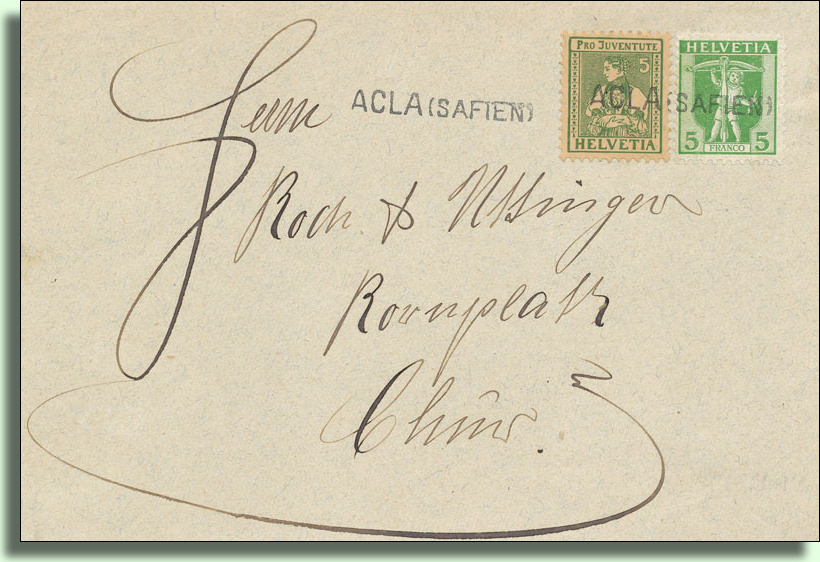 PRO JUVENTUTE
5
HELVETIA
HELVETIA
5 FRANCO 5
ACLA (SAFIEN)
ACLA (SAFIEN)
Herrn
Koch &
Kornplatz
Chur.